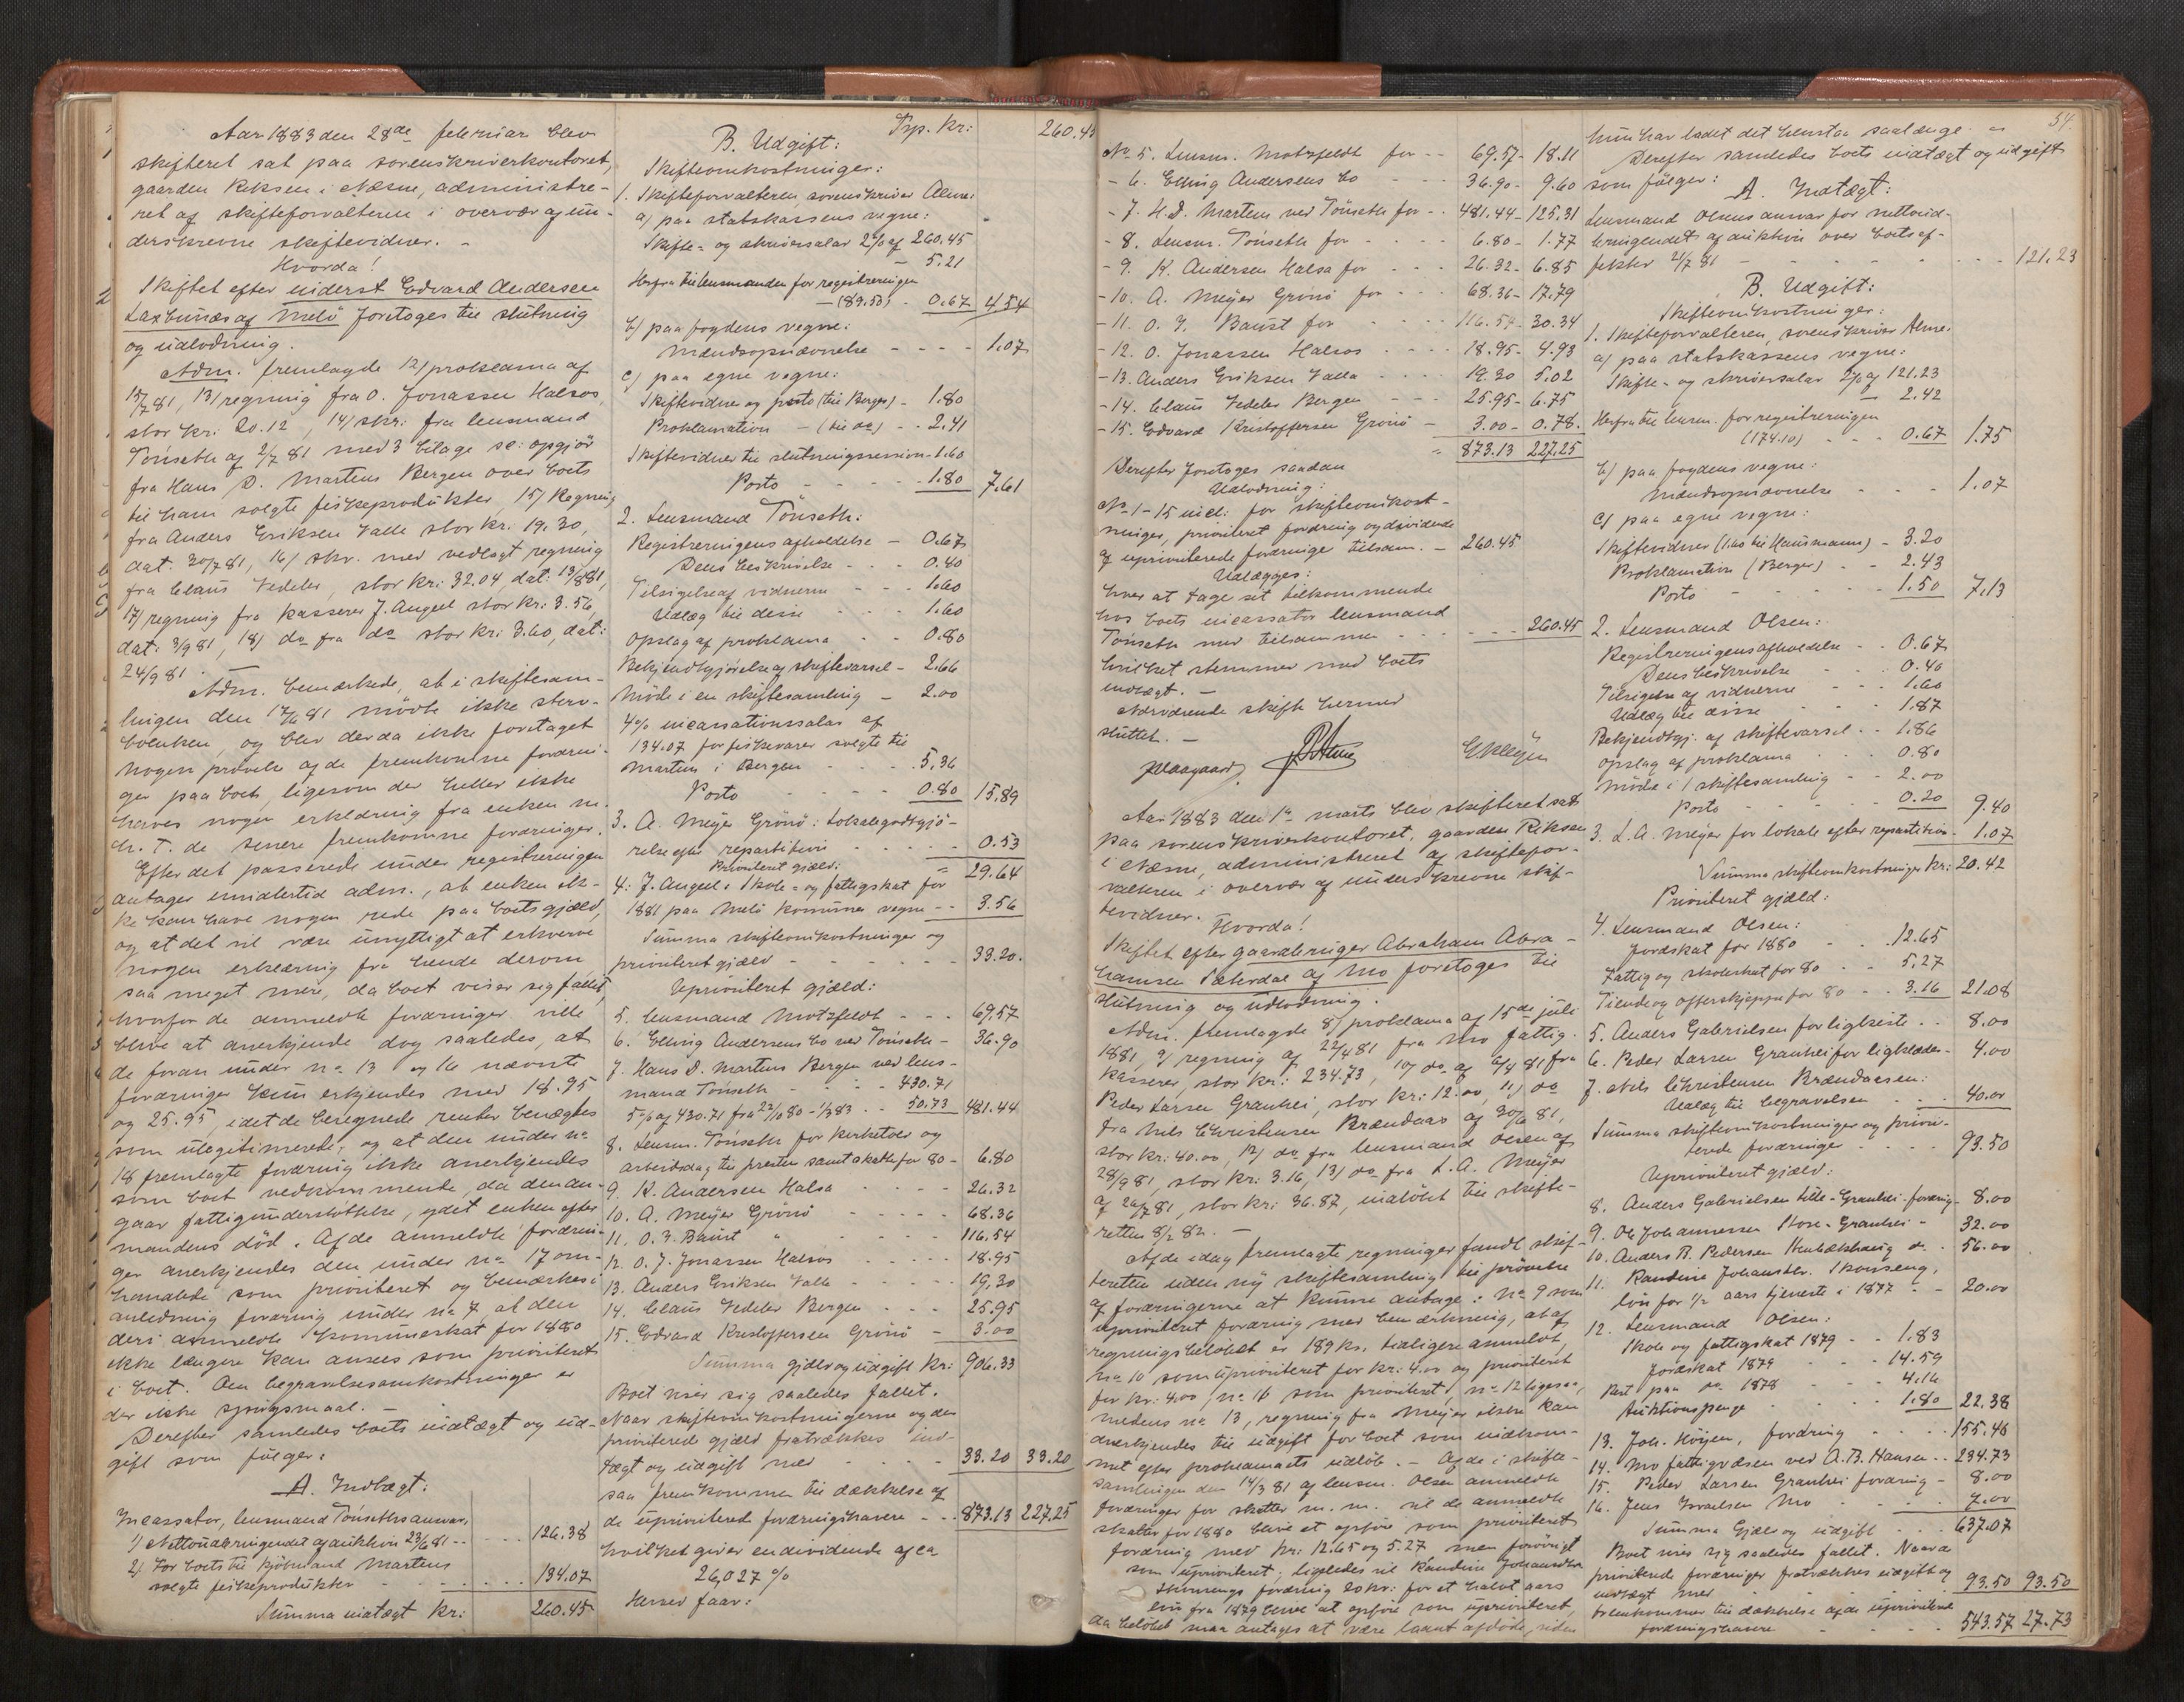 Aar 1883 den 28de februar blev
skifteret sat paa sorenskriverkontoret,
gaarden Riksen i Næsne, administre-
ret af skifteforvalteren i overvær af un-
derskrevne skiftevidner. -
Hvorda!
Skiftet efter inderst Edvard Andersen
Laxbunæs af Melö foretoges til slutning
og udlodning.
Adm. fremlagde 12) proklama af
15/7 81, 13) regning fra O. Jonassen Halsos,
stor kr: 20.12, 14) skr: fra lensmand
Tönseth af 2/7 81 med 3 bilage sc: opgjör
fra Hans D. Martens Bergen over boets
til ham solgte fiskeprodukter, 15) Regning
fra Anders Eriksen Valle stor kr. 19.30,
dat: 30/7 81, 16) skr. med vedlagt regning
fra Claus Vedeler, stor kr: 32.04 dat: 13/8 81,
17) regning fra kasserer J. Angell stor kr: 3.56,
dat: 3/9 81, 18) do fra do stor kr: 3.60, dat:
24/9 81.
Adm. bemærkede, at i skiftesam-
lingen den 17/6 81 mödte ikke sterv-
boenken, og blev der da ikke foretaget
nogen prövelse af de fremkomne fordrin-
ger paa boet, ligesom der heller ikke
haves nogen erklæring fra enken m.
h. t. de senere fremkomne fordringer.
Efter det passerede under registreringen
antager imidlertid adm., at enken ik-
ke kan have nogen rede paa boets gjæld,
og at det vil være unyttigt at erhverve
nogen erklæring fra hende derom
saa meget mere, da boet viser sig fallit,
hvorfor de anmeldte fordringer ville
blive at anerkjende dog saaledes, at
de foran under no 13 og 16 nævnte
fordringer kun erkjendes med 18.95
og 25.95, idet de beregnede renter benægtes
som ulegitimerede, og at den under no
18 fremlagte fordring ikke anerkjendes
som boet vedkommende, da den an-
gaar fattigunderstöttelse, ydet enken efter
mandens död. Af de anmeldte fordrin-
ger anerkjendes den under no 17 om-
handlede som prioriteret og bemærkes i
anledning fordring under no 7 at den
deri anmeldte kommuneskat for 1880
ikke længere kan ansees som prioriteret
i boet. Om begravelsesomkostninger er
der ikke spörgsmaal. -
Derefter samledes boets indtægt og ud-
gift som fölger:
A. Indtægt:
Incassator, lensmand Tönseths ansvar,
1) Nettoudbringendet af auktion 23/6 81 - - 126.38
2) For boets til kjöbmand Martens
solgte fiskeprodukter - - - 134.07
Summa indtægt kr: 260.45
Trp. kr: 260.45
B. Udgift:
Skifteomkostninger:
1. Skifteforvalteren sorenskriver Alme:
a) paa statskassens vegne:
Skifte- og skriversalar 2% af 260.45
- 5.21
Herfra til lensmanden for registreringen
- (89.50) - 0.67 4.54
b) paa fogdens vegne:
Mandsopnævnelse - - - 1.07
c) paa egne vegne:
Skiftevidner og porto (til Berger) - 1.80
Proklamation - (til do) - - 2.41
Skiftevidner til slutningssession - 1.60
Porto - - - 1.80 7.61
2. Lensmand Tönseth:
Registreringens afholdelse - 0.67
Dens beskrivelse - - - 0.40
Tilsigelse af vidnerne - 1.60
Udlæg til disse - - - 1.60
Opslag af proklama - - 0.80
Bekjendtgjörelse af skiftevarsel - 2.66
Möde i en skiftesamling - 2.00
4% incassationssalar af
134.07 for fiskevarer solgte til
Martens i Bergen - - - 5.36
Porto - - - 0.80 15.89
3. A. Meyer Grönö: Lokalegodtgjö-
relse efter repartition - - - 0.53
29.64
Prioriteret gjæld:
4: J. Angell: Skole- og fattigskat for
1881 paa Melö kommunes vegne - - 3.56
Summa skifteomkostninger og
prioriteret gjæld - - - 33.20.
Uprioriteret gjæld:
5. lensmand Motzfeldt - - - 69.57
6. Elling Andersens bo ved Tönseth - 36.90
7. Hans D. Martens Bergen ved lens-
mand Tönseth - - - 430.71
5% af 430.71 fra 22/10 80 - 1/3 83 - - 50.73 481.44
8. Lensm. Tönseth for kirketold og
arbeidsdag til presten samt skatte for 80 - 6.80
9. K. Andersen Halsa - - - 26.32
10. A. Meyer Grönö - - - 68.36
11. O. J. Baust " - - - 116.54
12. O. J. Jonassen Halsos - - - 18.95
13. Anders Eriksen Valle - - - 19.30
14. Claus Vedeler Bergen - - - 25.95
15. Edvard Kristoffersen Grönö - 3.00
Summa gjæld og udgift kr: 906.33
Boet viser sig saaledes fallit.
Naar skifteomkostningerne og den
prioriterede gjæld fratrækkes ind-
tægt og udgift med - - - 33.20 33.20
saa fremkommer til dækkelse af
de uprioriterede fordringshavere - - 873.13 227.25
hvilket giver en dividende af ca
26,027 %
Herved faar:
54.
No 5. Lensm. Motzfeldt for - - 69.57 - 18.11
- 6. Elling Andersens bo - - - 36.90 - 9.60
- 7. H. D. Martens ved Tönseth for - - 481.44 - 125.31
- 8. Lensm. Tönseth for - - - 6.80 - 1.77
- 9. K. Andersen Halsa for - - - 26.32 - 6.85
- 10. A. Meyer Grönö for - - - 68.36 - 17.79
- 11. O. J. Baust for - - - 116.54 - 30.34
- 12. O. Jonassen Halsos - - - 18.95 - 4.93
- 13. Anders Eriksen Valla - - - 19.30 5.02
- 14. Claus Vedeler Bergen - - - 25.95 - 6.75
- 15. Edvard Kristoffersen Grönö - 3.00 - 0.78.
873.13 227.25
Derefter foretoges saadan
Udlodning:
No 1-15 incl: for skifteomkost-
ninger, prioriteret fordring og dividende
af uprioriterede fordringer tilsam. - 260.45
Udlægges:
hver at tage sit tilkommende
hos boets incassator lensmand
Tönseth med tilsammen - - - 260.45
hvilket stemmer med boets
indtægt. -
Nærværende skifte hermed
sluttet. -
Aar 1883 den 1te marts blev skifteret sat
paa sorenskriverkontoret, gaarden Riksen
i Næsne, administreret af skiftefor-
valteren i overvær af underskrevne skif-
tevidner.
Hvorda!
Skiftet efter gaardbruger Abraham Abra-
hamsen Sæterdal af Mo foretoges til
slutning og udlodning.
Adm. fremlagde 8) proklama af 15de juli
1881, 9) regning af 22/4 81 fra Mo fattig-
kasserer, stor kr: 234.73, 10) do af 6/4 81 fra
Peder Larsen Granhei, stor kr: 12.00, 11) do
fra Nils Christensen Brændaas af 30/6 81,
stor kr: 40.00, 12) do fra lensmand Olsen af
28/9 81, stor kr: 3.16, 13) do fra L. A. Meyer
af 20/7 81, stor kr: 36.87, indlöbet til skifte-
retten 8/2 82. -
Af de idag fremlagte regninger fandt skif-
teretten uden ny skiftesamling til prövelse
af fordringerne at kunne antage: no 9 som
uprioriteret fordring med bemærkning, at af
regningsbelöbet er 189 kr. tidligere anmeldt,
no 10 som uprioriteret for kr: 4.00 og prioriteret
for kr: 4.00, no 11 som prioriteret, no 12 ligesaa,
medens no 13, regning fra Meyer ikke kan
anerkjendes til udgift for boet som indkom-
met efter proklamaets udlöb. - Af de i skifte-
samlingen den 14/3 81 af lensm. Olsen anmeldte
fordringer for skatter m. m. vil de anmeldte
skatter for 1880 blive at opföre som prioriteret
fordring med kr: 12.65 og 5.27 men forövrigt
som uprioriteret; ligeledes vil Randine Johansdtr.
fordring 20 kr: for et halvt aars
lön fra 1879 blive at opföre som uprioriteret,
da belöbet maa antages at være laant afdöde, siden
hun har ladet det henstaa saalænge. -
Derefter samledes boets indtægt og udgift
som fölger:
A. Indtægt:
Lensmand Olsens ansvar for nettoud-
bringendet af auktion over boets ef-
fekter 21/7 81 - - - 121.23
B. Udgift:
Skifteomkostninger:
1. Skifteforvalteren, sorenskriver Alme:
a) paa statskassens vegne:
Skifte- og skriversalar 2% af 121.23
- 2.42
Herfra til lensm. for registreringen
(174.10) - - - 0.67 1.75
b) paa fogdens vegne:
Mandsopnævnelse - - - 1.07
c) paa egne vegne:
Skiftevidner (1.60 til Hausmann) - 3.20
Proklamation (Berger) - - 2.43
Porto - - - 1.50 7.13
2. Lensmand Olsen:
Registreringens afholdelse - - 0.67
Dens beskrivelse - - - 0.40
Tilsigelse af vidnerne - - - 1.60
Udlæg til disse - - - 1.87
Bekjendtgj. af skiftevarsel - - 1.86
Opslag af proklama - - 0.80
Möde i 1 skiftesamling - - 2.00
Porto - - - 0.20 9.40
3. L. A. Meyer for lokale efter repartition - 1.07
Summa skifteomkostninger kr: 20.42
Prioriteret gjæld:
4. Lensmand Olsen:
Jordskat for 1880 - - - 12.65
Fattig og skoleskat for 80 - - 5.27
Tiende og offerskjæppe for 80 - - 3.16 21.08
5. Anders Gabrielsen for ligkiste - - 8.00
6. Peder Larsen Granhei for ligklæder - 4.00
7. Nils Christensen Brændaasen:
Udlæg til begravelsen - - - 40.00
Summa skifteomkostninger og priori-
terede fordringer - - - 93.50
Uprioriteret gjæld:
8. Anders Gabrielsen Lille-Granhei - fordring - 8.00
9. Ole Johannesen Store-Granhei - 32.00
10. Anders B. Pedersen do - 56.00
11. Randine Johansdtr. Skonseng,
lön for 1/2 aars tjeneste i 1877 - - 20.00
12. Lensmand Olsen:
Skole og fattigskat 1879 - - 1.83
Jordskat 1879 - - 14.59
Rest paa do 1878 - - 4.16
Auktionspenge - - - 1.80 22.38
13. Joh. Höyen, fordring - - - 155.46
14. Mo fattigvæsen ved A. B. Hansen - - 234.73
15. Peder Larsen Granhei fordring - 8.00
16. Jens Israelsen Mo - - - 7.00
Summa gjæld og udgift - - - 637.07
Boet viser sig saaledes fallit. Naar de
prioriterede fordringer fratrækkes udgift og
indtægt med - - - 93.50 93.50
fremkommer til dækkelse af de uprioriterede
fordringshavere - - - 543.57 27.73